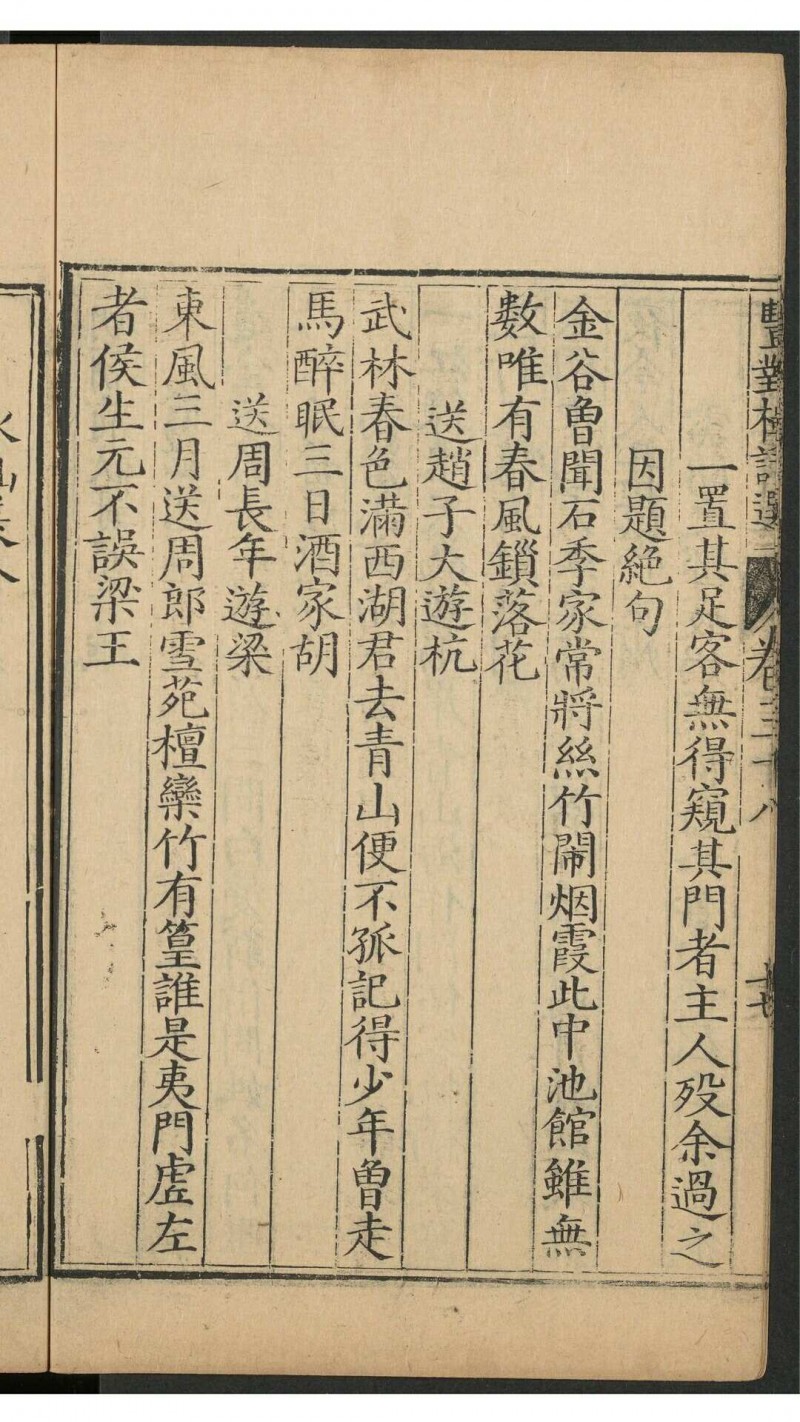 豐對樓詩選 卷三十八 十七
一置其足客無得窺其門者主人歿余過之
因題絕句
金谷曾聞石季家常將絲竹鬧烟霞此中池館雖無
數唯有春風鎖落花
送趙子大遊杭
武林春色滿西湖君去青山便不孤記得少年曾走
馬醉眠三日酒家胡
送周長年遊梁
東風三月送周郎雪苑檀欒竹有篁誰是夷門虛左
者侯生元不誤梁王